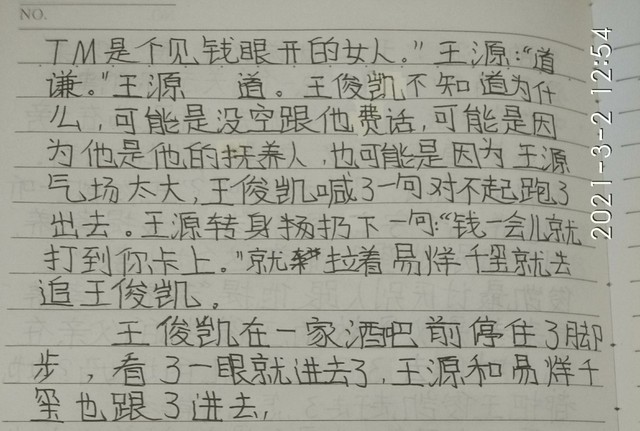 NO.
TM是个见钱眼开的女人。"王源:"道
谦。"王源 道。王俊凯不知道为什
么,可能是没空跟他费话,可能是因
为他是他的抚养人,也可能是因为王源
气场太大,王俊凯喊了一句对不起跑了
出去。王源转身扬扔下一句:"钱一会儿就
打到你卡上。"就拉着易烊千玺就去
追王俊凯。
王俊凯在一家酒吧前停住了脚
步,看了一眼就进去了,王源和易烊千
玺也跟了进去,
2021-3-2 12:54